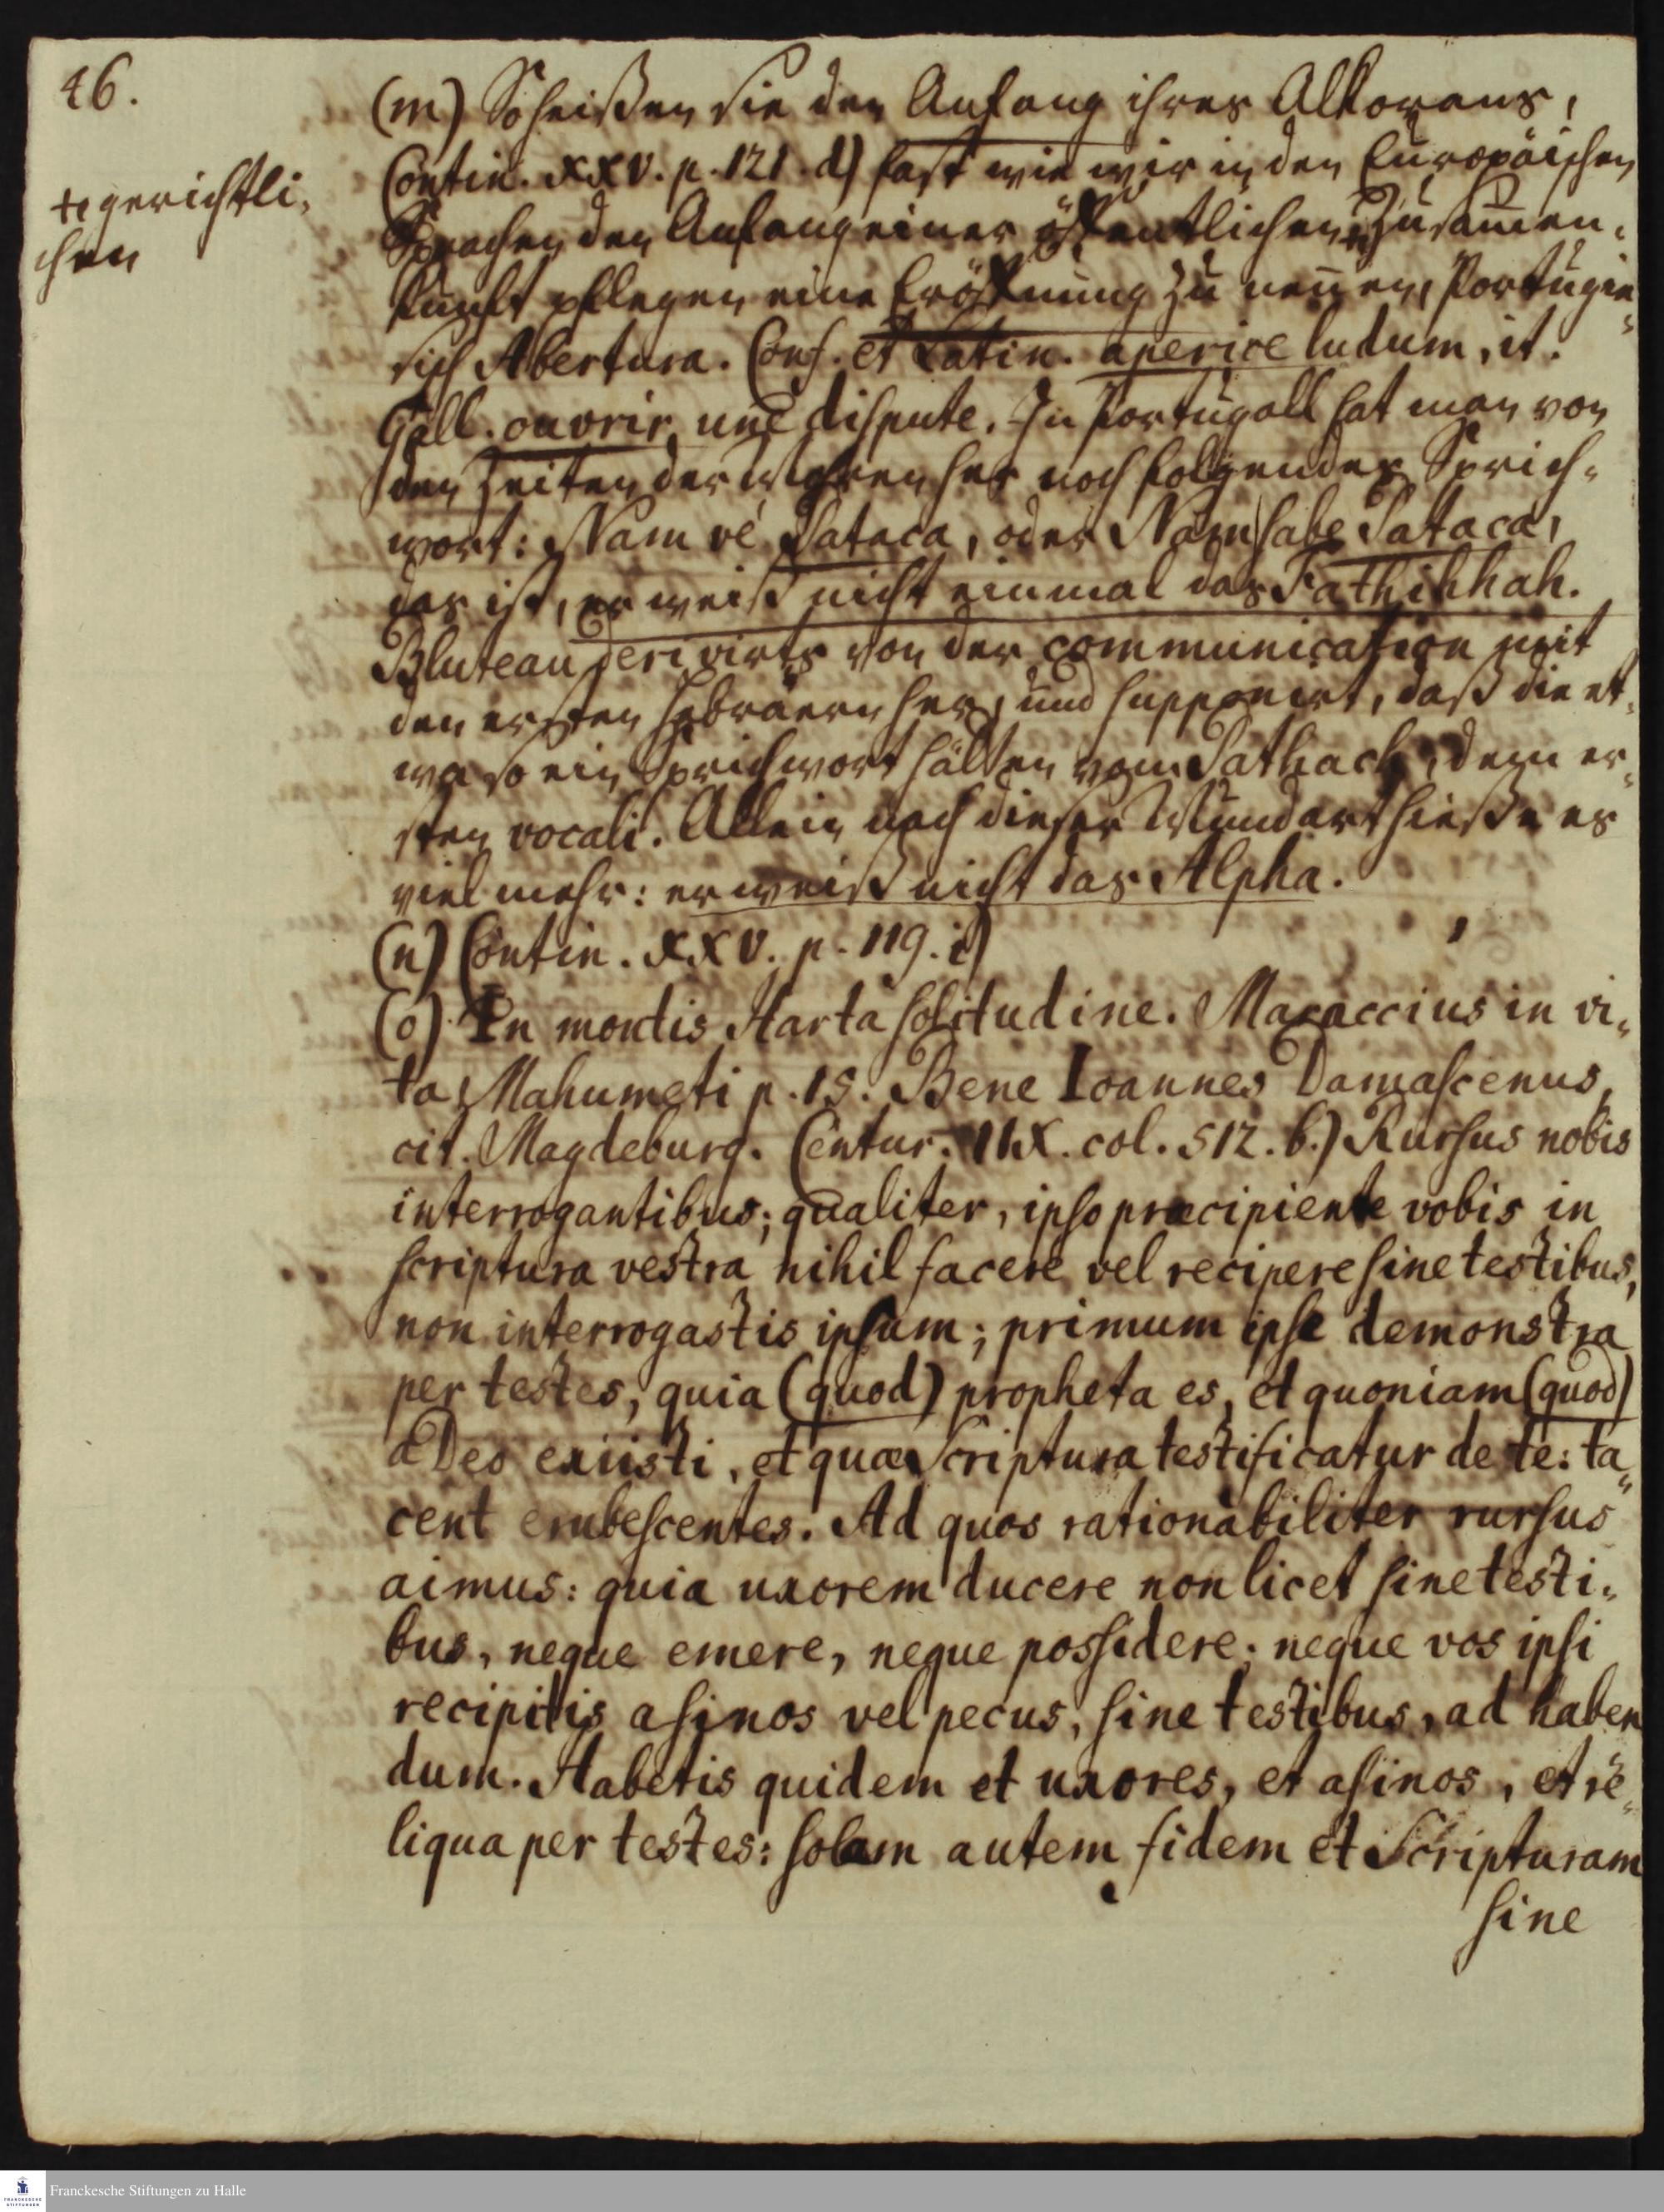 46.
(m) So heißen sie den Anfang ihres Alkorans,
Contin. XXV. p. 121. d) fast wie wir in den Europäischen
+ gerichtli-
chen
Sprachen den Anfang einer öffentlichen + Zusam̄en-
kunft pflegen eine Eröffnung zu nen̄en, Portugie-
sisch Abertura. Conf. et Latin. aperire ludum, it.
Gall. ouvrir une dispute. In Portugall hat man von
den Zeiten der Mohren her noch folgendes Sprich-
wort: Nam vé Pataca, oder Nam sabe Pataca,
das ist, er weiß nicht einmal das Fathihhah.
Bluteau derivirts von der communication mit
den ersten Hebräern her, und supponirt, daß die et-
wa so ein Sprichwort hätten vom Pathach, dem er-
sten vocali. Allein nach dieser Mundart hieße es
viel mehr: er weiß nicht das Alpha.
(n) Contin. XXV. p. 119. i)
(o) In montis Harta solitudine. Maraccius in vi-
ta Mahumeti p. 15. Bene Ioannes Damascenus,
cit. Magdeburg. Centur. IIX. col. 512. b.) Rursus nobis
interrogantibus; qualiter, ipso præcipiente vobis in
scriptura vestra nihil facere vel recipere sine testibus,
non interrogastis ipsum; primum ipse demonstra
per testes, quia (quod) propheta es, et quoniam (quod)
a Deo exiisti, et quæ Scriptura testificatur de te: ta-
cent erubescentes. Ad quos rationabiliter rursus
aimus: quia uxorem ducere non licet sine testi-
bus, neque emere, neque possidere; neque vos ipsi
recipitis asinos vel pecus, sine testibus, ad haben
dum. Habetis quidem et uxores, et asinos, et re-
liqua per testes: solam autem fidem et Scripturam
sine
Franckesche Stiftungen zu Halle
FRANCKESCHE
STIFTUNGEN